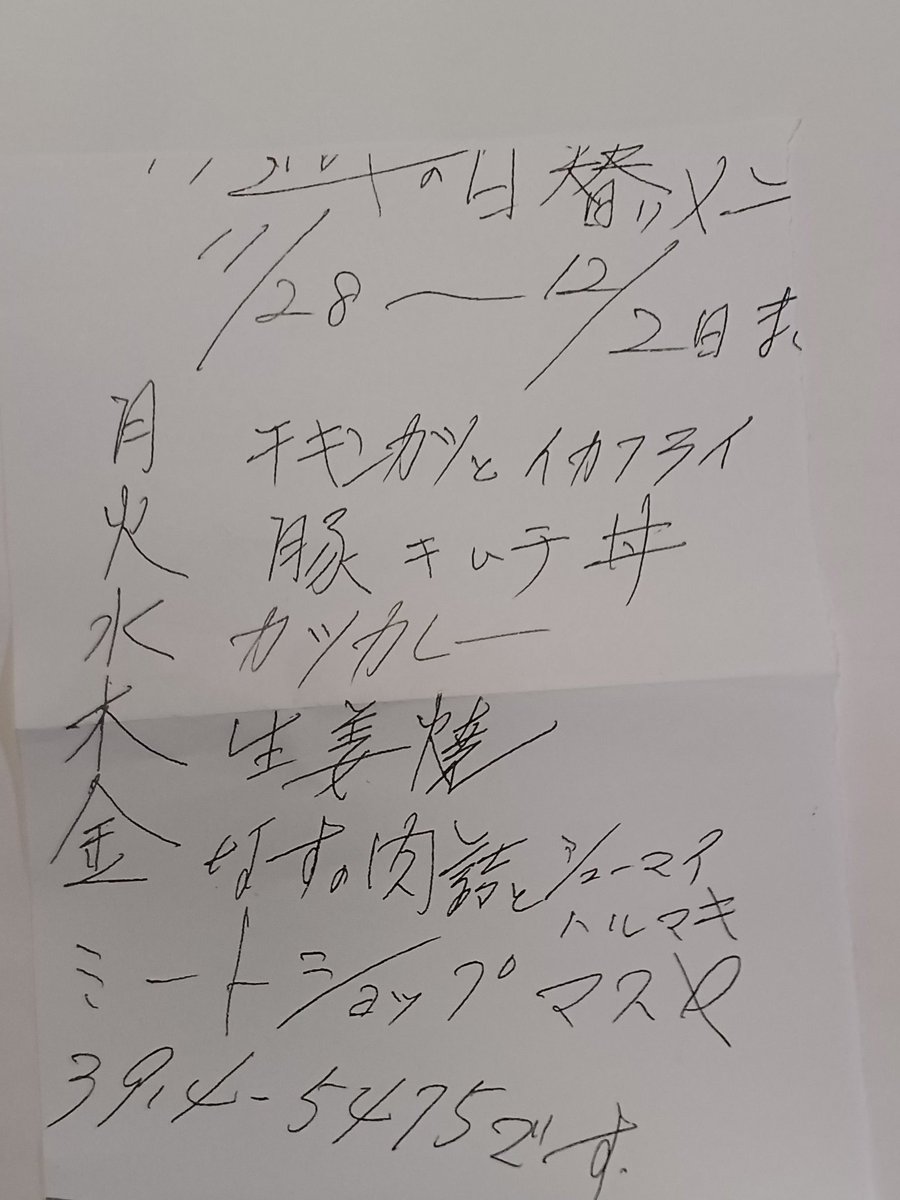 の日替りメニ
11/28〜12/2日ま
月 チキンカツとイカフライ
火 豚キムチ丼
水 カツカレー
木 生姜焼
金 なすの肉詰とシューマイ
ハルマキ
ミートショップマスヤ
3914-5475です.